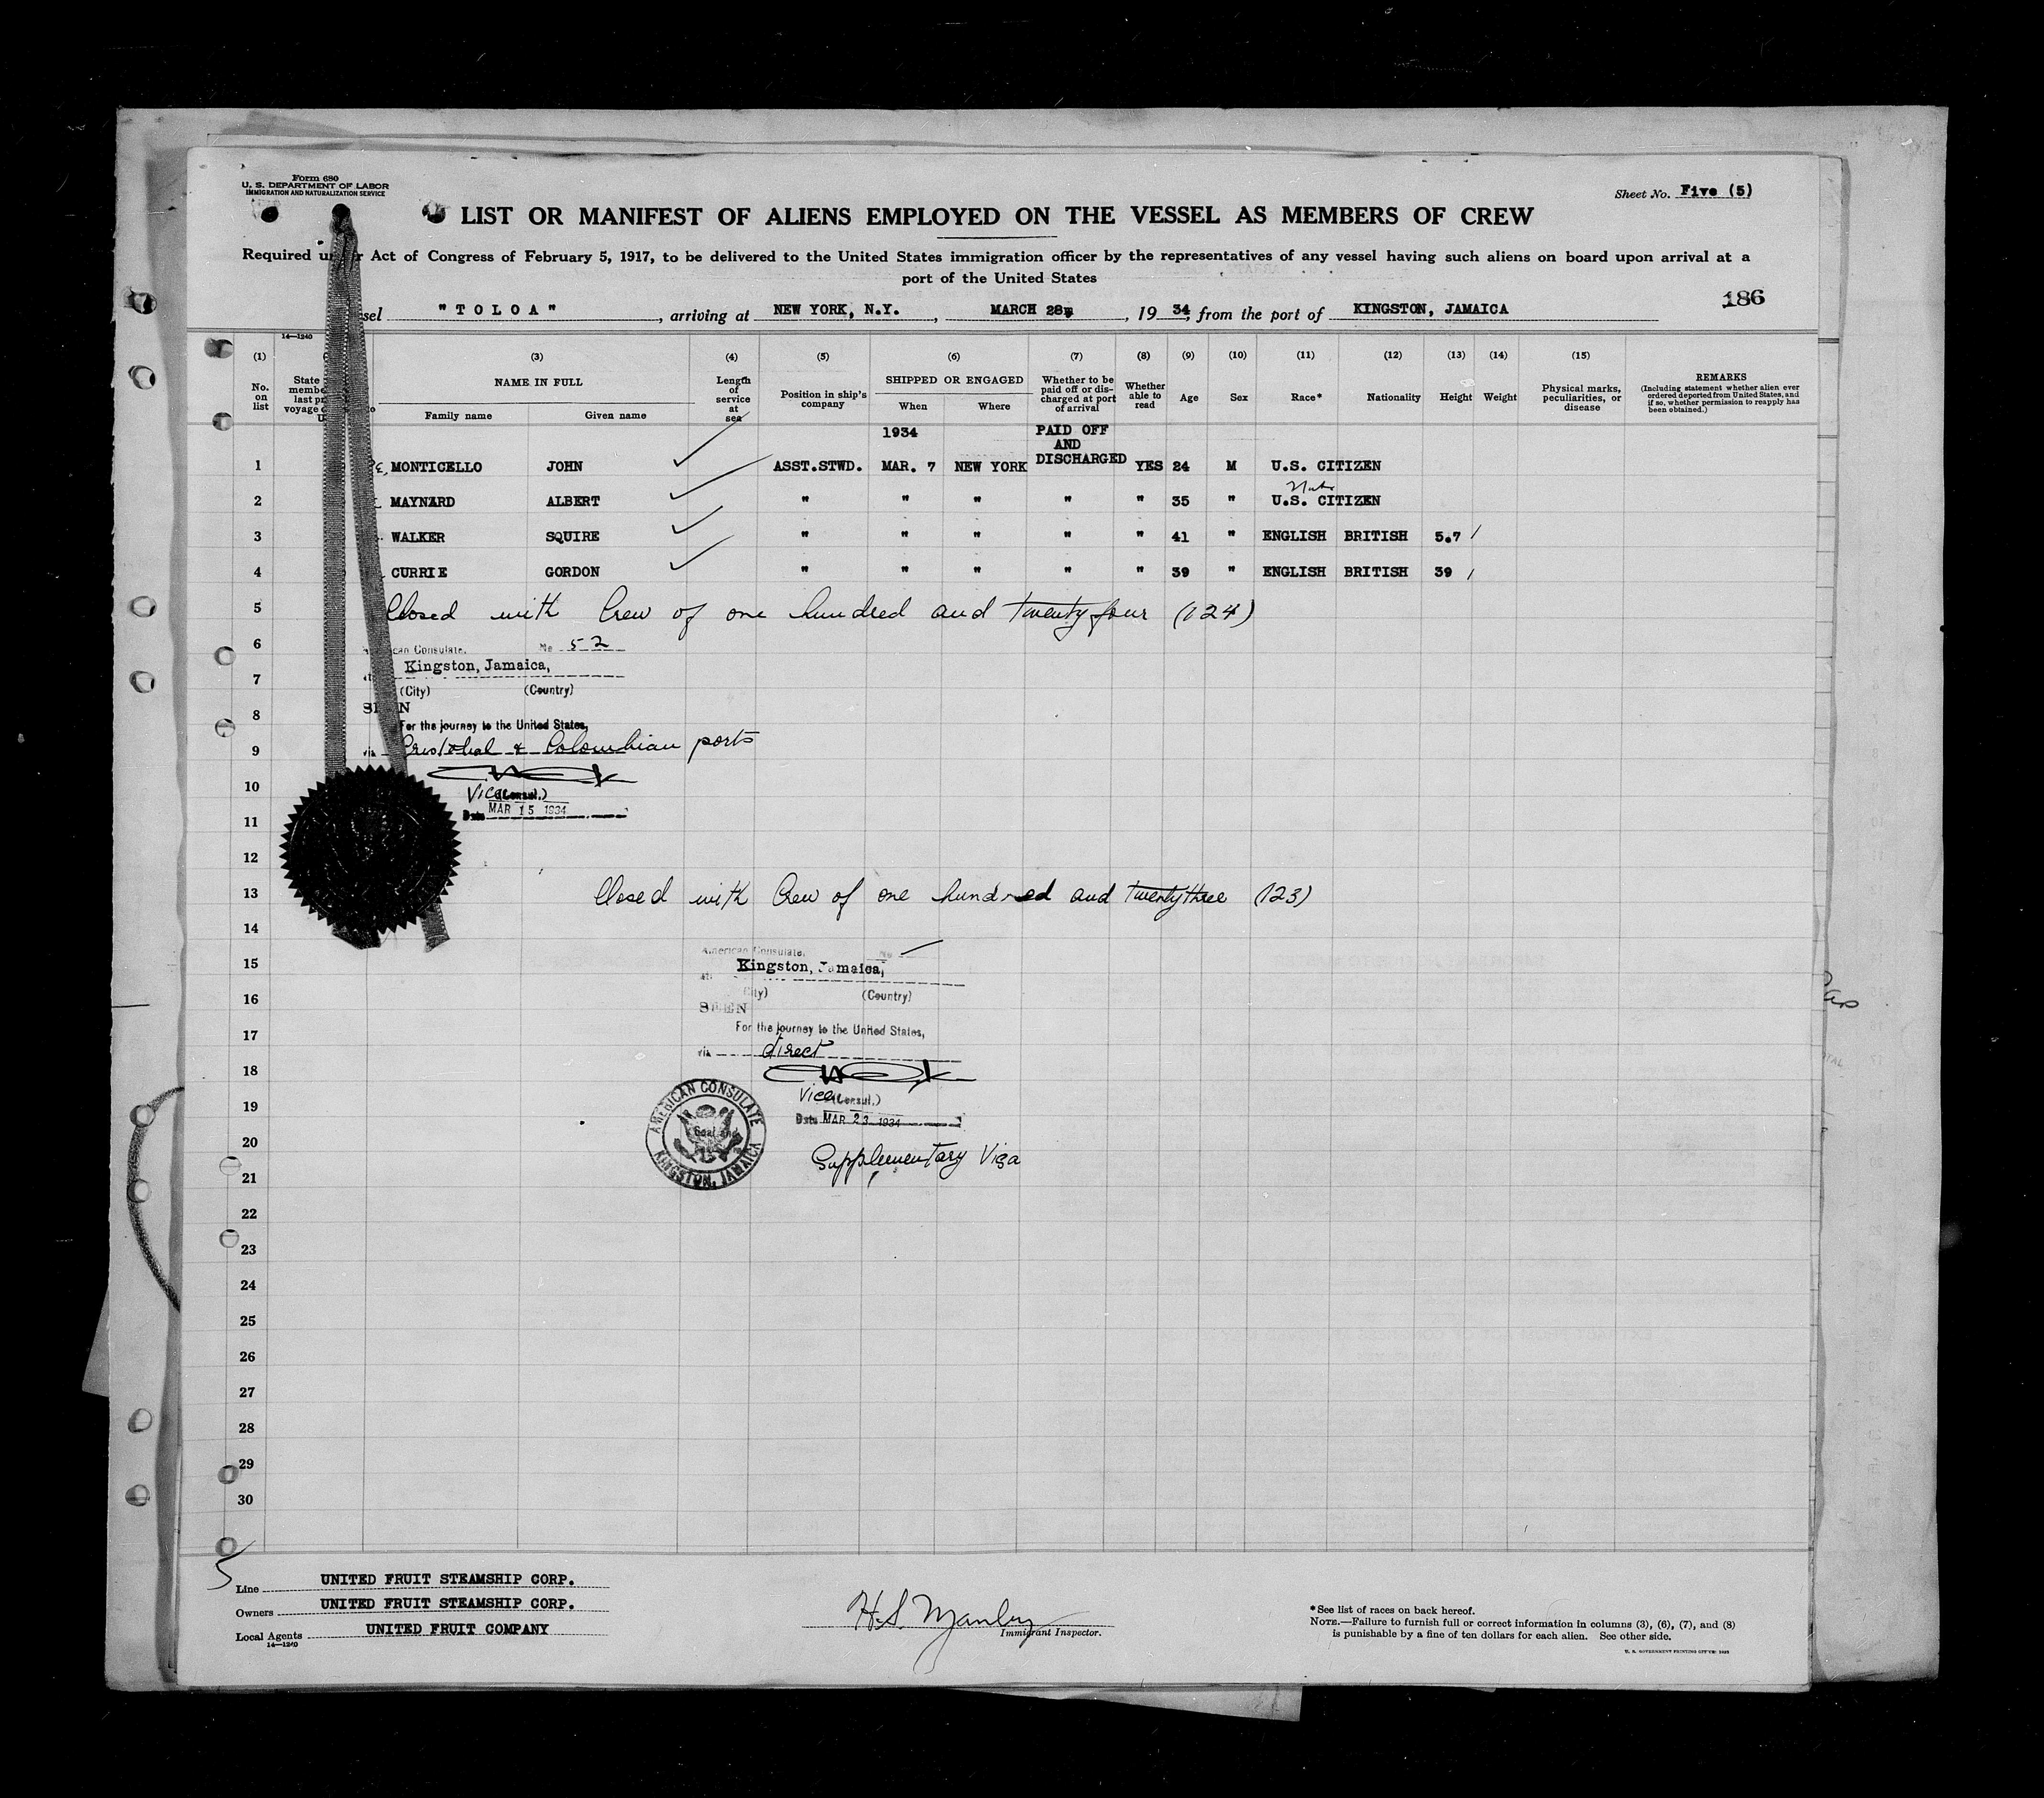 Form 680
U. S. DEPARTMENT OF LABOR
IMMIGRATION AND NATURALIZATION SERVICE
Sheet No. Five (5)
LIST OR MANIFEST OF ALIENS EMPLOYED ON THE VESSEL AS MEMBERS OF CREW
Required under Act of Congress of February 5, 1917, to be delivered to the United States immigration officer by the representatives of any vessel having such aliens on board upon arrival at a
port of the United States
186
sel "TOLOA", arriving at NEW YORK, N.Y., MARCH 28, 1934, from the port of KINGSTON, JAMAICA
14—1240
(1) (3) (4) (5) (6) (7) (8) (9) (10) (11) (12) (13) (14) (15)
No. on list
NAME IN FULL
Family name Given name
Length of service at sea
Position in ship's company
SHIPPED OR ENGAGED
When Where
Whether to be paid off or discharged at port of arrival
Whether able to read
Age Sex Race* Nationality Height Weight
Physical marks, peculiarities, or disease
REMARKS
(Including statement whether alien ever ordered deported from United States, and if so, whether permission to reapply has been obtained.)
1934 PAID OFF
AND
1 MONTICELLO JOHN ASST.STWD. MAR. 7 NEW YORK DISCHARGED YES 24 M U.S. CITIZEN
2 MAYNARD ALBERT " " " " " 35 " U.S. CITIZEN
3 WALKER SQUIRE " " " " " 41 " ENGLISH BRITISH 5.7
4 CURRIE GORDON " " " " " 39 " ENGLISH BRITISH 39
5 Closed with Crew of one hundred and twenty four (124)
6 American Consulate, No 52
7 at Kingston, Jamaica,
(City) (Country)
8 SEEN
For the journey to the United States,
9 via Cristobal & Colombian ports
10 Vice (Consul.)
11 Date MAR 15 1934
12
13 Closed with Crew of one hundred and twenty three (123)
14
American Consulate, No
15 at Kingston, Jamaica,
16 (City) (Country)
SEEN
17 For the journey to the United States,
via direct
18
19 Vice (Consul.)
Date MAR 23 1934
AMERICAN CONSULATE
KINGSTON, JAMAICA
20 Supplementary Visa
21
22
23
24
25
26
27
28
29
30
5
Line UNITED FRUIT STEAMSHIP CORP.
Owners UNITED FRUIT STEAMSHIP CORP.
Local Agents UNITED FRUIT COMPANY
14—1240
H.S. Manley
Immigrant Inspector.
*See list of races on back hereof.
NOTE.—Failure to furnish full or correct information in columns (3), (6), (7), and (8)
is punishable by a fine of ten dollars for each alien. See other side.